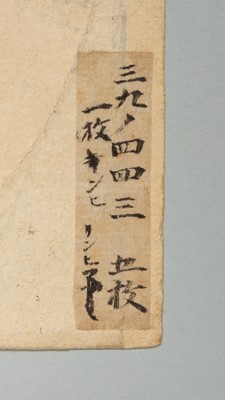 三九ノ四四三 枚
一枚 キンヒ リンヒ